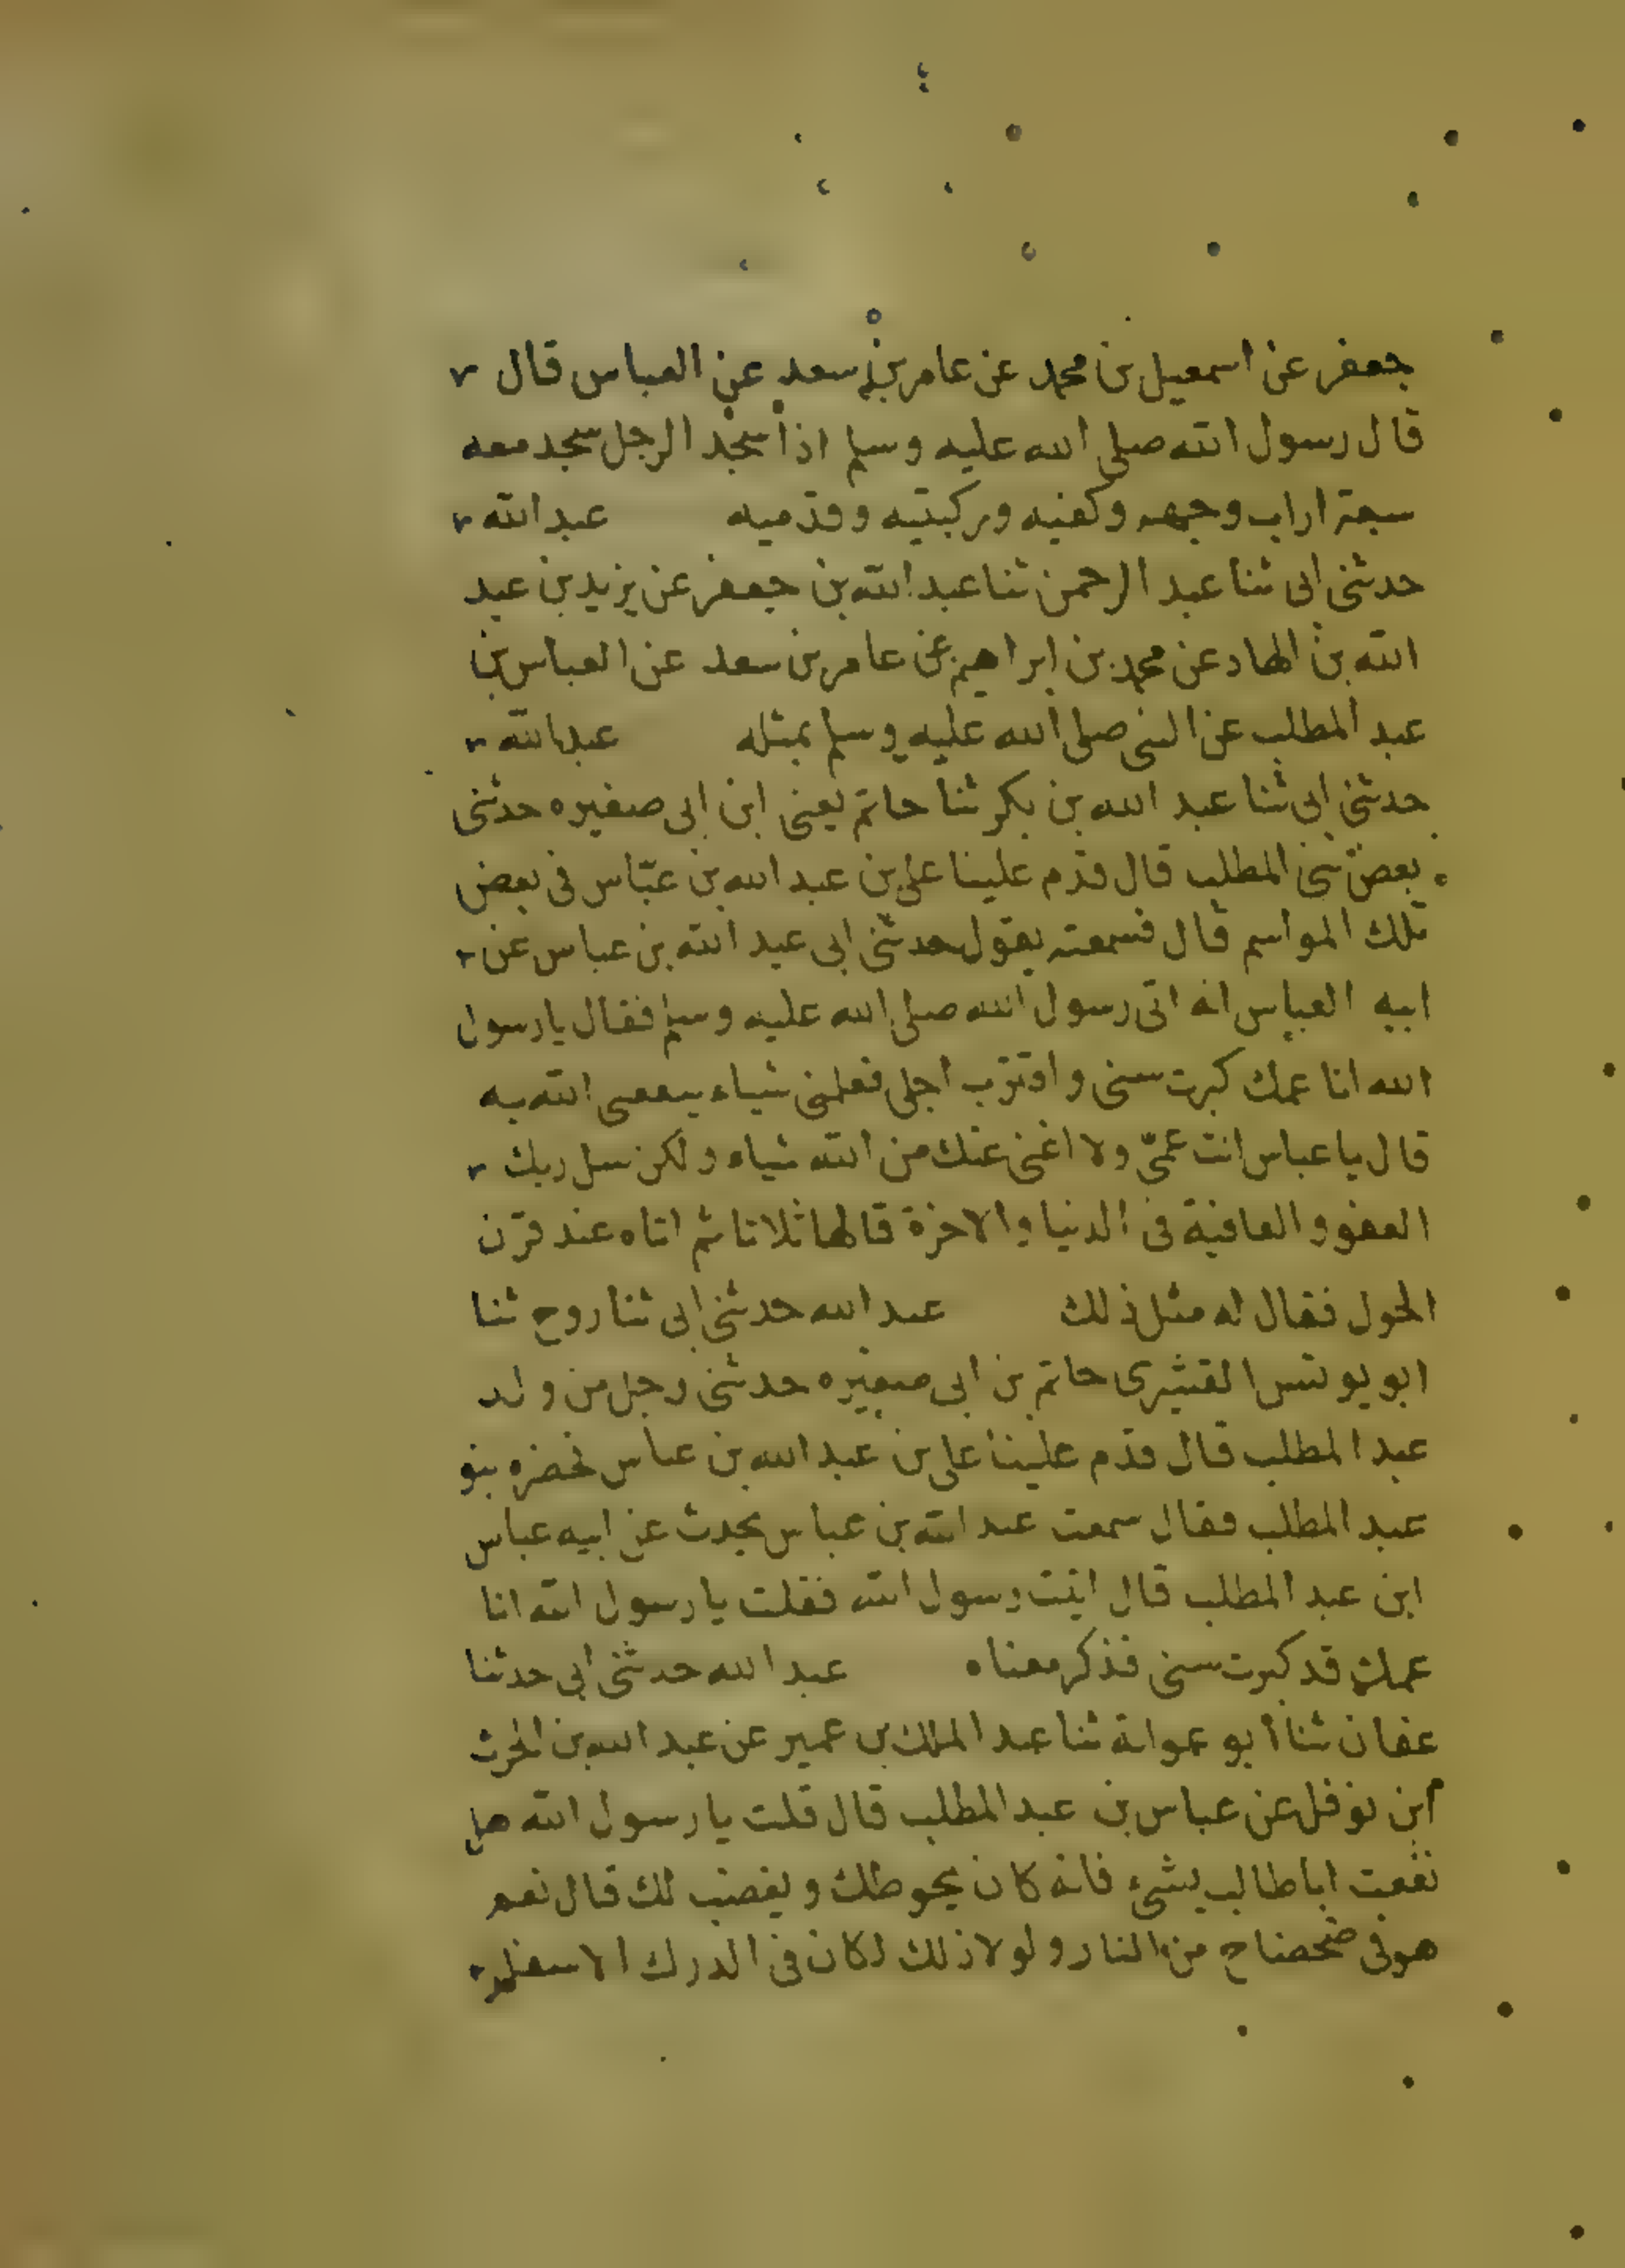 جعفر عن اسمعيل بن محمد عن عامر بن سعد عن العباس قال
قال رسول الله صلى الله عليه وسلم اذا سجد الرجل سجد معه
سبعة اراب وجهه وكفيه وركبتيه وقدميه عبد الله
حدثني ابى ثنا عبد الرحمن ثنا عبد الله بن جعفر عن يزيد بن عبد
الله بن الهاد عن محمد بن ابراهيم عن عامر بن سعد عن العباس بن
عبد المطلب عن النبي صلى الله عليه وسلم بمثله عبد الله
حدثني ابى ثنا عبد الله بن بكر ثنا حاتم يعنى ابن ابى صغيره حدثنى
بعض بنى المطلب قال قدم علينا على بن عبد الله بن عبّاس فى بعض
تلك المواسم قال فسمعته يقول حدثنى ابى عبد الله بن عباس عن
ابيه العباس انه اتى رسول الله صلى الله عليه وسلم فقال يا رسول
الله انا عمك كبرت سنى واقترب اجلى فعلمنى شياء ينفعنى الله به
قال يا عباس انت عمّى ولا اغنى عنك من الله شياء ولكن سل ربك
العفو والعافية فى الدنيا والاخرة قالها ثلاثا ثم اتاه عند قرن
الحول فقال له مثل ذلك عبد الله حدثنى ابى ثنا روح ثنا
ابو يونس القشيرى حاتم بن ابى صغيره حدثنى رجل من ولد
عبد المطلب قال قدم علينا على بن عبد الله بن عباس فحضره بنو
عبد المطلب فقال سمعت عبد الله بن عباس يحدث عن ابيه عباس
ابن عبد المطلب قال اتيت رسول الله فقلت يا رسول الله انا
عمك قد كبرت سنى فذكر معناه عبد الله حدثنى ابى حدثنا
عفان ثنا أبو عوانة ثنا عبد الملك بن عمير عن عبد الله بن الحرث
ابن نوفل عن عباس بن عبد المطلب قال قلت يا رسول الله هل
نفعت ابا طالب بشئ فانه كان يحوطك ويغضب لك قال نعم
هو فى ضحضاح من النار ولولا ذلك لكان فى الدرك الاسفل